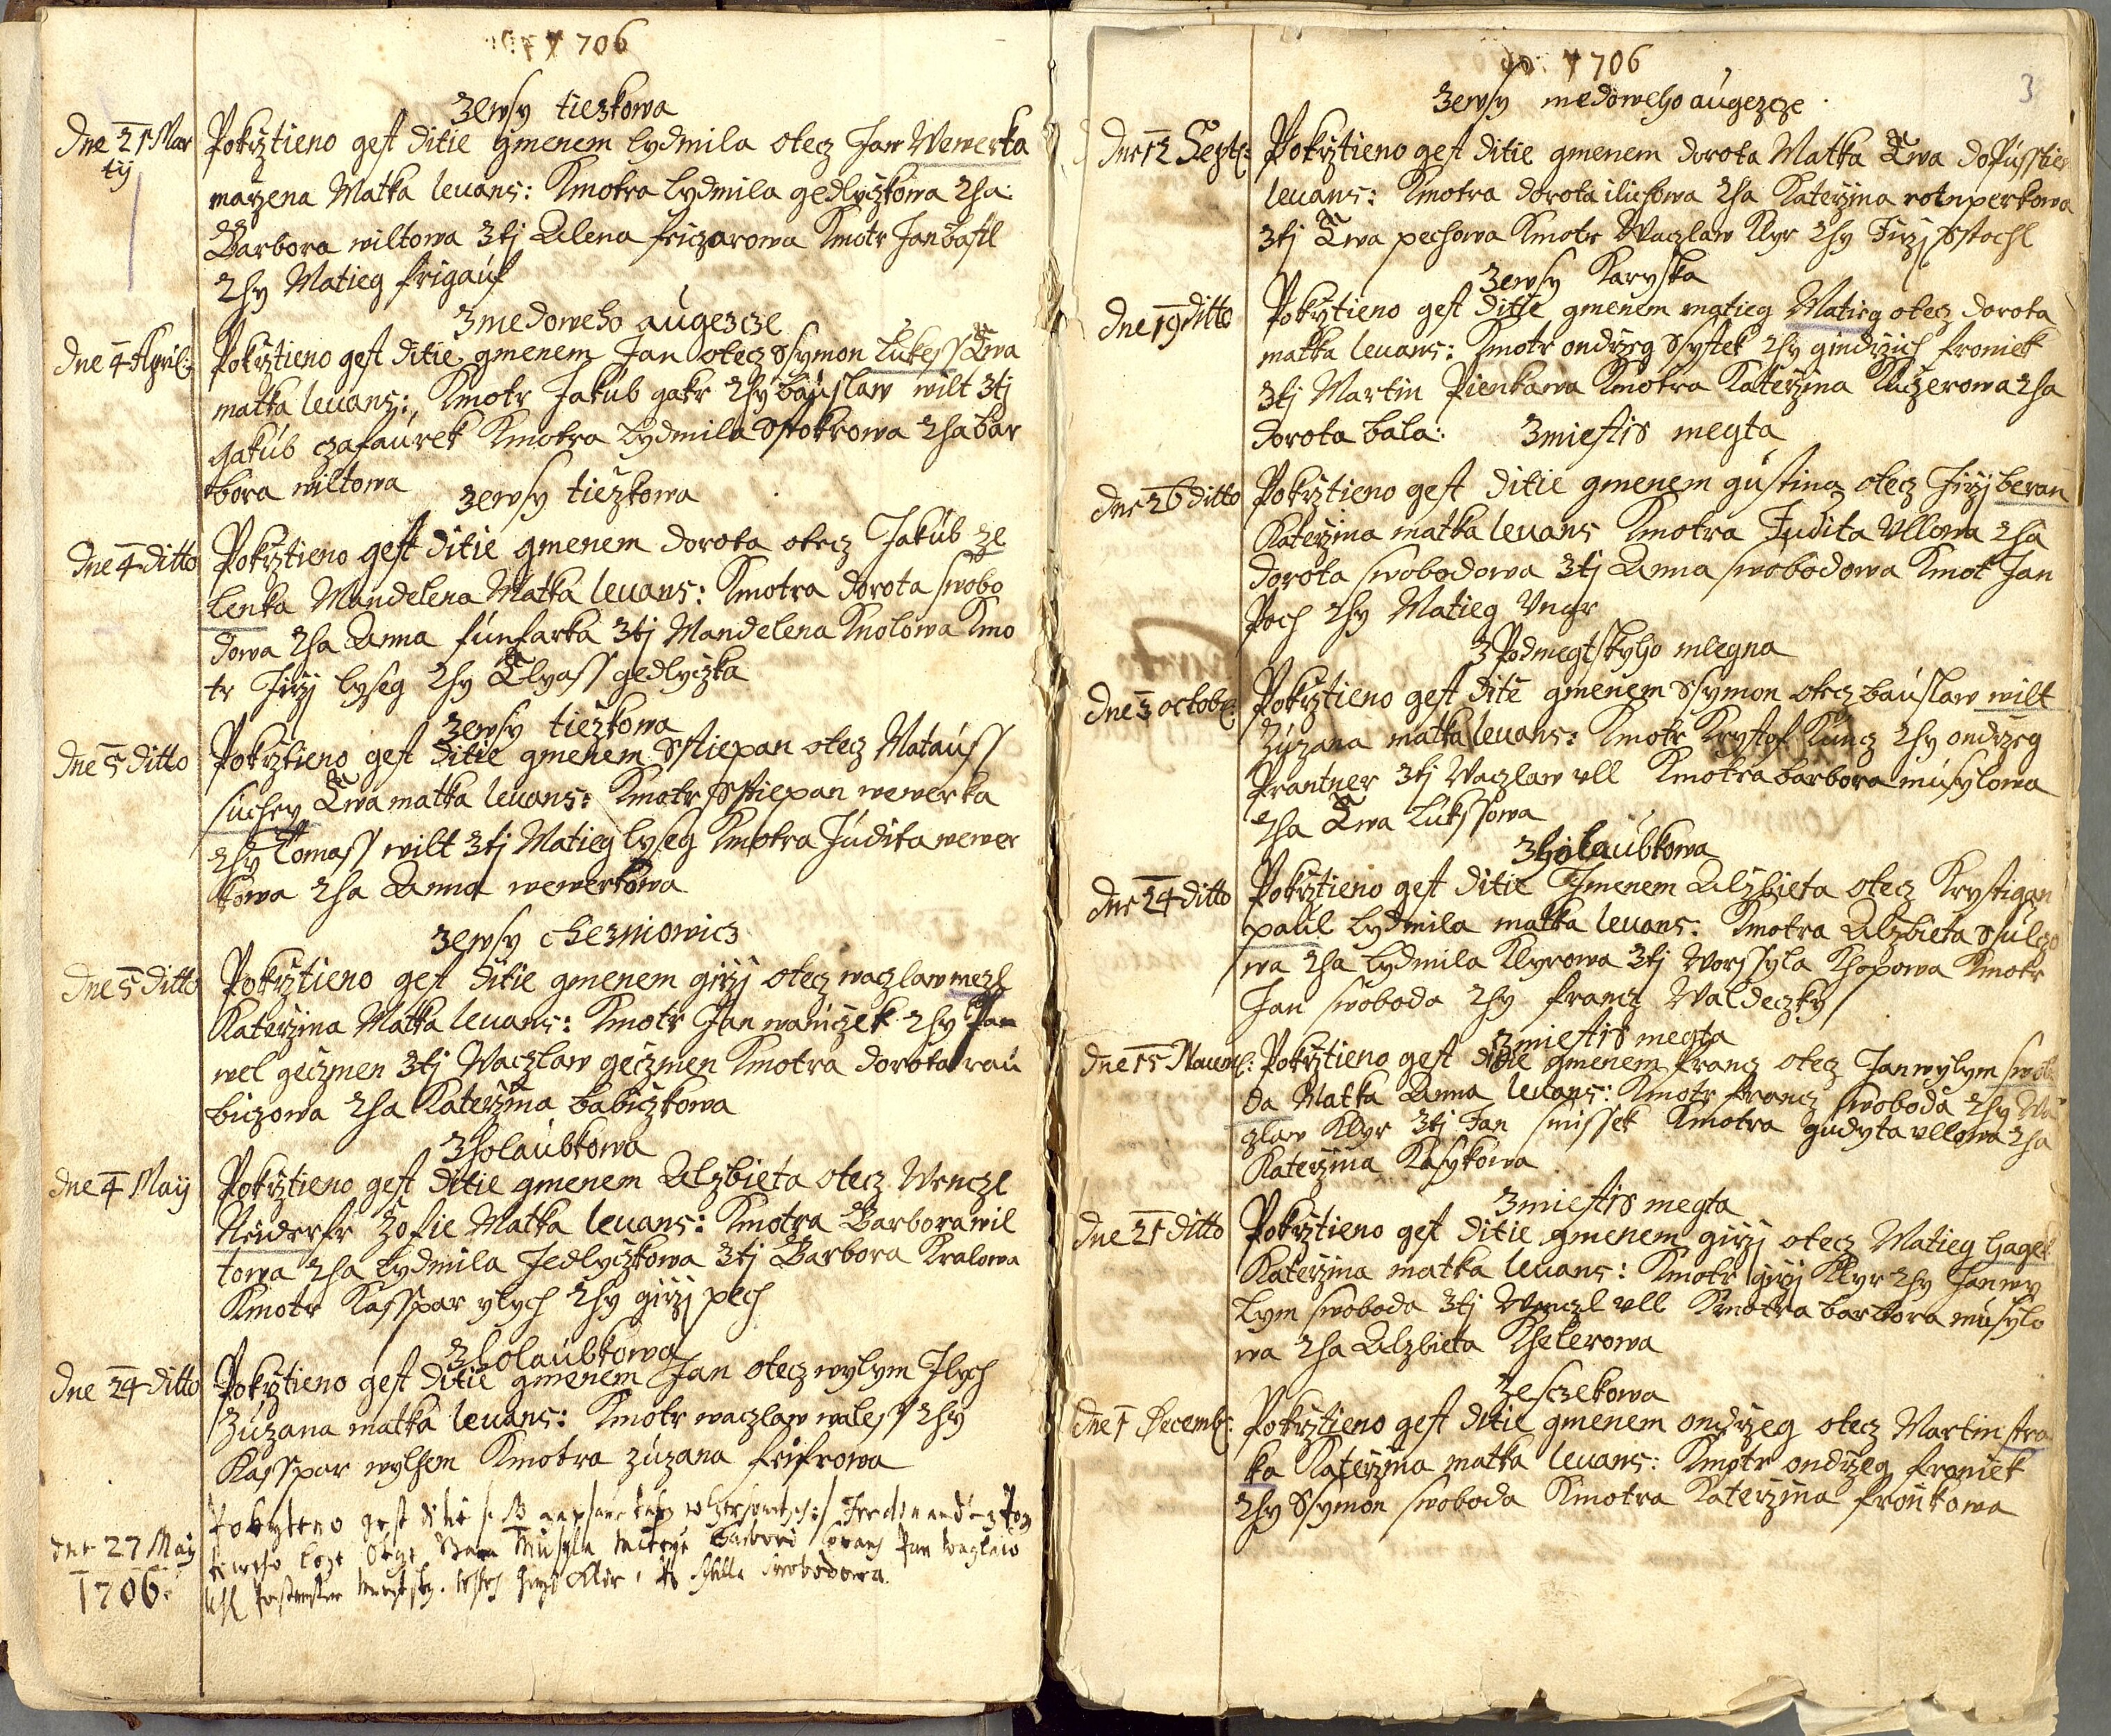 1706
zewsy tiezkowa
Dne 21 Mar Pokrztieno gest ditie gmenem lydmila otecz Jan Wewerka
tij marzena Matka leuans: Kmotra lydmila gedlyczkowa 2ha:
Barbora wiltowa 3tj Alena friczarowa Kmotr Jan bastl
2hy Matieg frigauf
z medoweho augezcze
Dne 4 April: Pokrztieno gest ditie gmenem Jan otecz Ssymon lukess Ewa
matka leuans: Kmotr Jakub gakr 2hy bauslaw wilt 3tj
Jakub czafaurek Kmotra Lydmila Sstokrowa 2ha bar
bora wiltowa
zewsy tiezkowa
Dne 4 ditto Pokrztieno gest ditie gmenem dorota otecz Jakub ze
lenka Mandelena Matka leuans: Kmotra dorota swobo
dowa 2ha Anna funfarka 3tj Mandelena Knolowa Kmo
tr Jirzj lyseg 2hy Elyass gedlyczka
zewsy tiezkowa
Dne 5 ditto Pokrztieno gest ditie gmenem Sstiepan otecz Matauss
suchey Ewa matka leuans: Kmotr Sstiepan wewerka
2hy Tomass wilt 3tj Matieg lyseg Kmotra Judita wewer
kowa 2ha Anna wewerkowa
zewsy chezniowicz
Dne 5 ditto Pokrztieno gest ditie gmenem girzj otecz waczlaw wezl
Katerzina Matka leuans: Kmotr Jan waniczek 2hy Pa
wel geczmen 3tj Waczlaw geczmen Kmotra dorota rau
biczowa 2ha Katerzina babiczkowa
z holaubkowa
Dne 4 Maij Pokrztieno gest ditie gmenem Alzbieta otecz Wenczl
Neiderfr Zofie Matka leuans: Kmotra Barbora wil
towa 2ha Lydmila Jedlyczkowa 3tj Barbora Kralowa
Kmotr Kasspar ylych 2hy girzj pech
z holaubkowa
Dne 24 ditto Pokrztieno gest ditie gmenem Jan otecz wylym Jlych
Zuzana matka leuans: Kmotr waczlaw waless 2hy
Kasspar wylhem Kmotra zuzana frifrowa
Dne 27 Maij Pokrzteno gest ditie
1706.
swobodowa.
1706
3
zewsy medoweho augezcze
Dne 12 Sept: Pokrztieno gest ditie gmenem dorota Matka Ewa dopusstie
leuans: Kmotra dorota ilichowa 2ha Katerzina rotnperkowa
3tj Ewa pechowa Kmotr Waczlaw Klyr 2hy Jirzj Sstochl
zewsy Karyska
Dne 19 ditto Pokrztieno gest ditie gmenem matieg Matieg otecz dorota
matka leuans: Kmotr ondrzeg Ssystek 2hy gindrzich froniek
3tj Martin Pienkawa Kmotra Katerzina Kuczerowa 2ha
dorota bala: z miestis megta
Dne 26 ditto Pokrztieno gest ditie gmenem gustina otecz Jirzj beran
Katerzina matka leuans Kmotra Judita Vllowa 2ha
dorota swobodowa 3tj Anna swobodowa Kmot Jan
Poch 2hy Matieg Vngr
z Podmegtskyho mlegna
Dne 3 octob: Pokrztieno gest dite gmenem Ssymon otecz bauslaw wilt
Zuzana matka leuans: Kmotr Krystof Kuncz 2hy ondrzeg
Prantner 3tj Waczlaw vll Kmotra barbora musylowa
2ha Ewa Lukssowa
z holaubkowa
Dne 24 ditto Pokrztieno gest ditie Jmenem Alzbieta otecz Krystigan
paul lydmila matka leuans: Kmotra Alzbieta Ssulczo
wa 2ha Lydmila Klyrowa 3tj Worssyla Khopowa Kmotr
Jan swoboda 2hy francz Waldeczky
z miestis megta
Dne 15 Nauemb: Pokrztieno gest ditie gmenem francz otecz Jan wylym swobo
da Matka Anna leuans: Kmotr francz swoboda 2hy Wa
czlaw Klyr 3tj Jan smissek Kmotra gudyta vllowa 2ha
Katerzina Kasykowa
z miestis megta
Dne 21 ditto Pokrztieno gest ditie gmenem girzj otecz Matieg hagek
Katerzina matka leuans: Kmotr girzj Klyr 2hy Jan wy
lym swoboda 3tj Wenczl vll Kmotra barbora musylo
wa 2ha Alzbieta Khelerowa
ze sczekowa
Dne 1 Decemb: Pokrztieno gest ditie gmenem ondrzeg otecz Martin stra
ka Katerzina matka leuans: Kmotr ondrzeg froniek
2hy Ssymon swoboda Kmotra Katerzina fronkowa